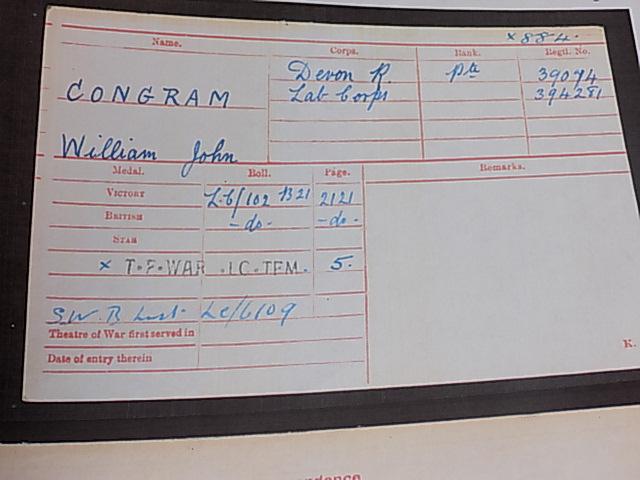 × 884.
Name. Corps. Rank. Regtl. No.
Devon R. Pte 39094
CONGRAM Lab Corps 394281
William John
Medal. Roll. Page. Remarks.
VICTORY L.6/102 B21 2121
BRITISH -do- -do-
STAR
× T·F·WAR LC·TFM. 5.
S.W.B List LC/6109
Theatre of War first served in
Date of entry therein
K.